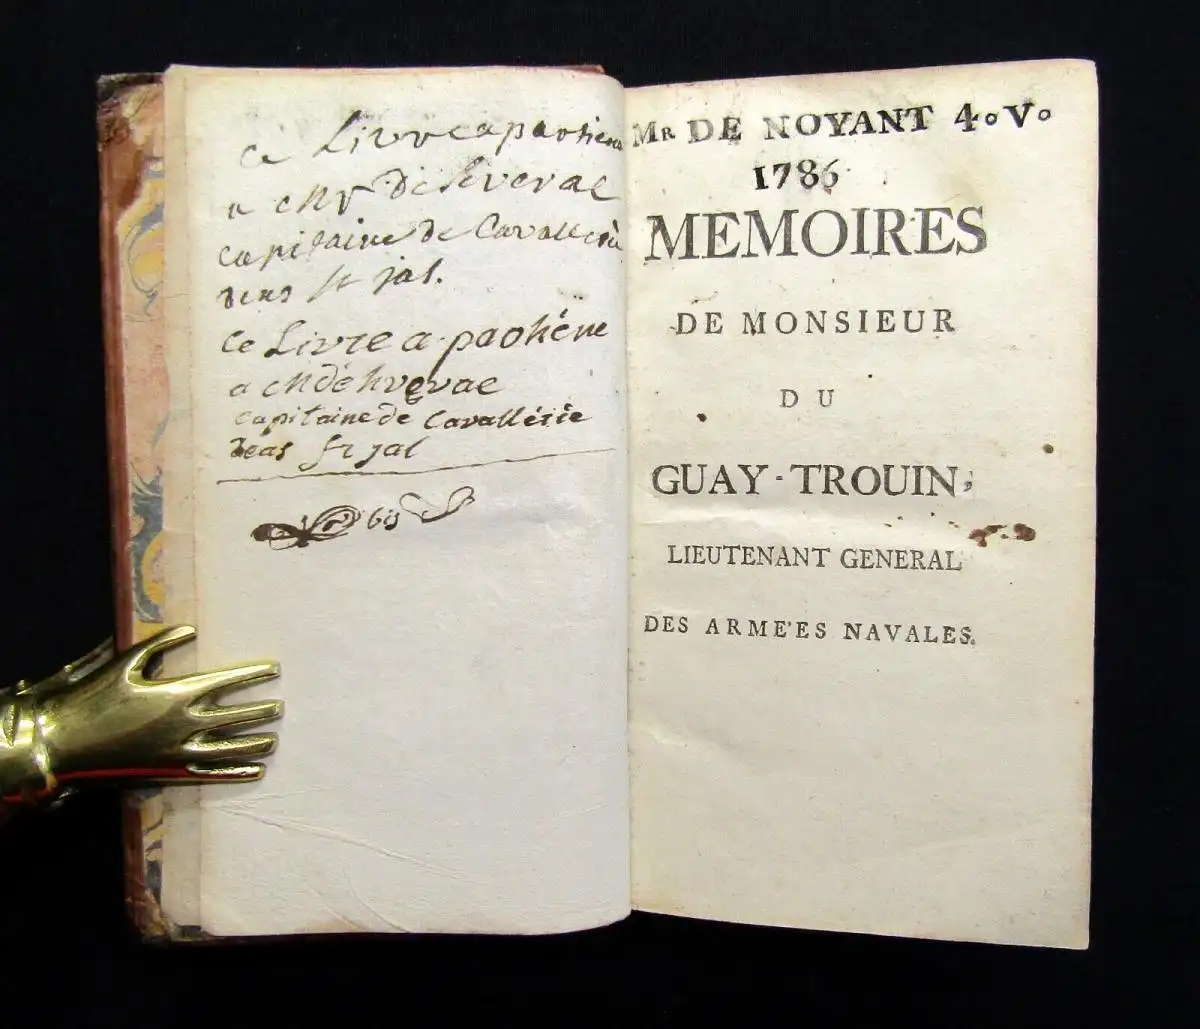 ce Livre apaohene
a
capitaine de Cavallerie
dens st jal.
ce Livre a paohéne
a
capitaine de Cavallérie
deas st jal
MR DE NOYANT 4.o V.o
1786
MEMOIRES
DE MONSIEUR
DU
GUAY-TROUIN,
LIEUTENANT GENERAL
DES ARME'ES NAVALES.